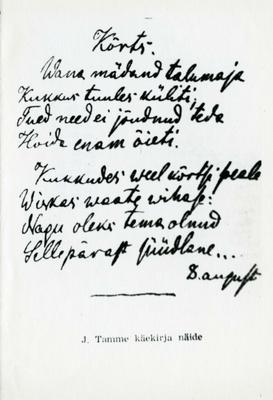 Kõrts.
Wana mädand talumaja
Kukkus tuules küliti,
Tued need ei jõudnud teda
Hoida enam õieti.
Kukkudes weel kõrtsi peale
Wiskas waate wihase:
Nagu oleks tema olnud
Sellepärast süüdlane...
D. august
J. Tamme käekirja näide